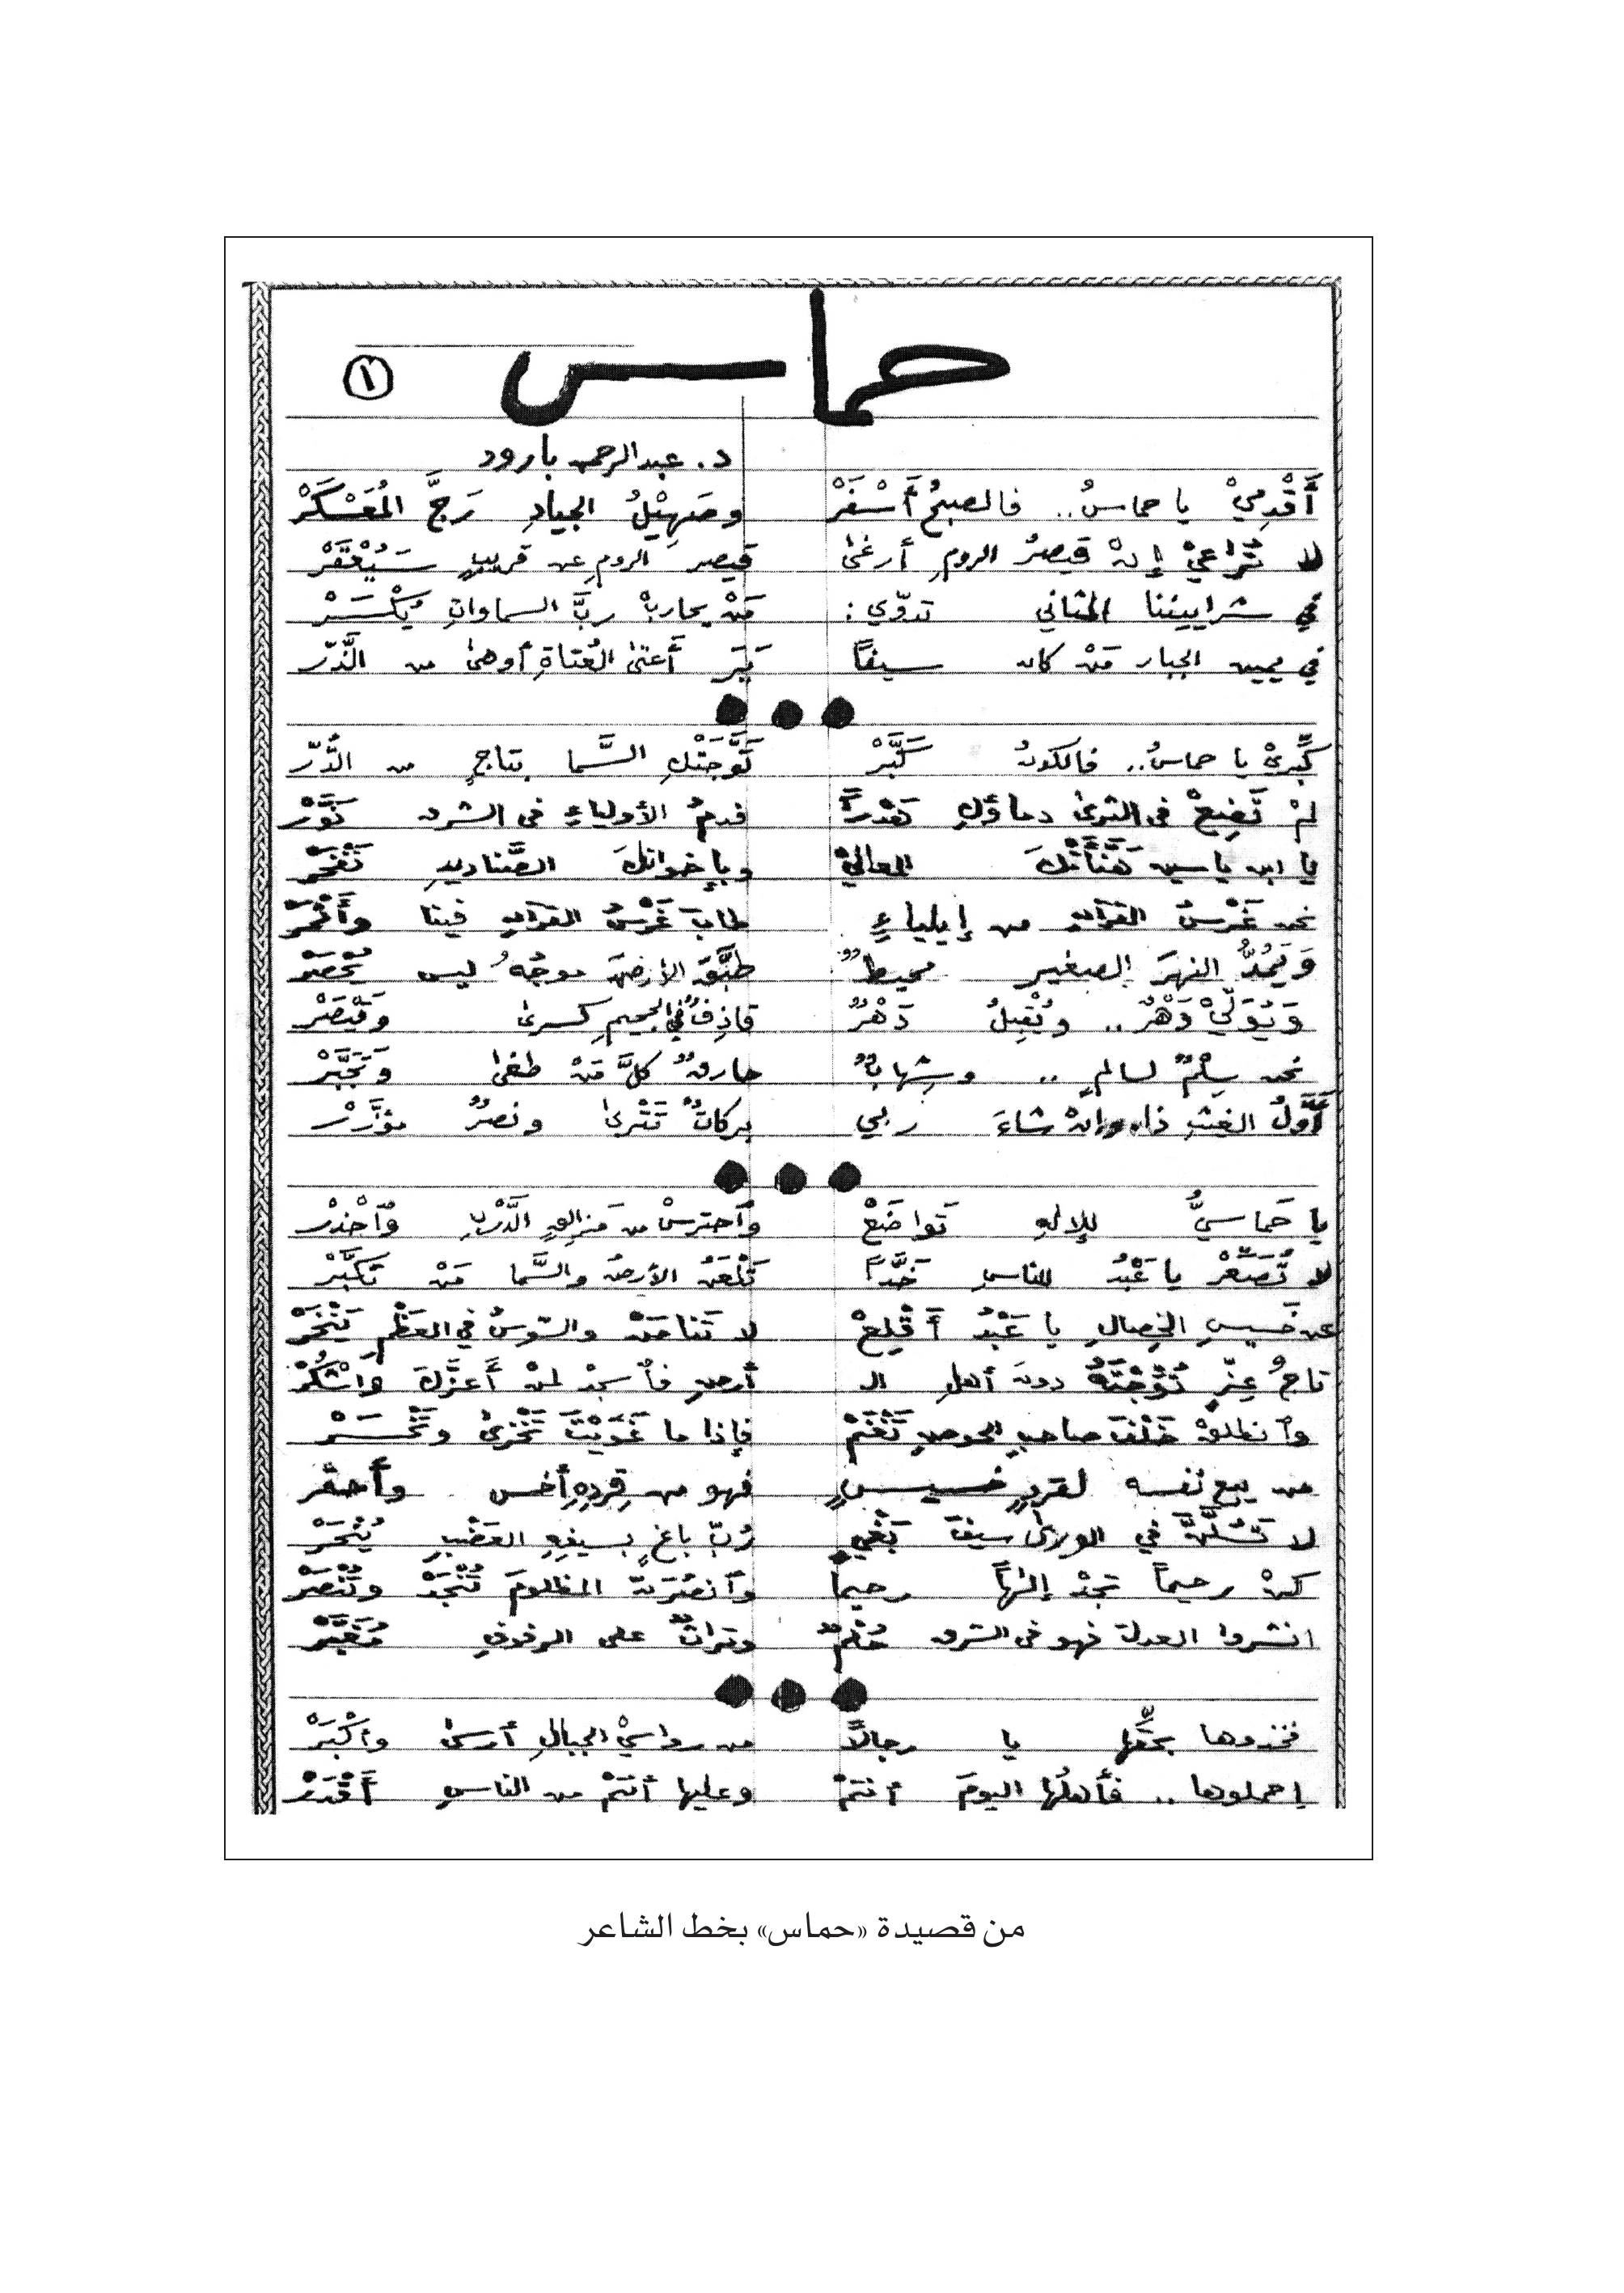 حماس
١
د. عبدالرحمن بارود
أَقْدِمِيْ يا حماسُ.. فالصبحُ أَسْفَرْ وصَهِيْلُ الجيادِ رَجَّ المُعَسْكَرْ
لا تُرَاعِيْ إنْ قيصرُ الرومِ أرغىٰ قيصرَ الرومِ عن قريبٍ سَيُعْقَرْ
في شرايينِنا المثاني تدوّي: مَنْ يحاربْ ربَّ السماواتِ يُكْسَرْ
في يمين الجبار مَنْ كان سيفاً يَرَ أَعتىٰ العُتاةِ أوهىٰ من الذَّرّ
كَبِّرِيْ يا حماسُ.. فالكونُ كَبَّرْ تَوَّجَتْكِ السَّما بتاجٍ من الدُّرّ
لمْ تَضِعْ في الثرىٰ دماؤكِ هَدْراً فدمُ الأولياءِ في الشرق نَوَّرْ
يا ابن ياسين هَنَّأَتْكَ المعاليْ وبإخوانكَ الصَّناديدِ تَفْخَرْ
نحن غَرْسُ القرآنِ من إيلياءٍ طابَ غَرْسُ القرآنِ فينا وأَثْمَرْ
وَيَمُدُّ النهرَ الصغير محيطٌ طبَّقَ الأرضَ موجُهُ ليس يُحْصَرْ
وَيُوَلِّيْ دَهْرٌ.. ويُقْبِلُ دَهْرٌ قاذِفٌ في الجحيمِ كِسرىٰ وقَيْصَرْ
نحن سِلْمٌ لسالمٍ .. وشِهابٌ حارقٌ كلَّ مَنْ طغىٰ وَتَجَبَّرْ
أَوَّلُ الغيثِ ذا، وإنْ شاءَ ربي بركاتٌ تَتْرىٰ ونصرٌ مؤزَّرْ
يا حَماسيُّ للإلهِ تَواضَعْ وٱحترسْ من مَزالقِ الدَّرْبِ وٱحْذَرْ
لا تُصَعِّرْ يا عَبْدُ للناسِ خَدَّاً تَلْعَنُ الأرضُ والسَّما مَنْ تَكَبَّرْ
عن خَسيسِ الخِصالِ يا عَبْدُ أَقْلِعْ لا تَنامَنْ والسّوسُ في العَظْمِ يَنْخَرْ
تاجُ عِزٍّ تُوِّجْتَهُ دونَ أهلِ الـ أرضِ فٱسجدْ لمنْ أَعزَّكَ وٱشْكُرْ
وٱنطلقْ خَلْفَ صاحبِ الحوضِ تَغْنَمْ فإذا ما غَوَيْتَ تَخْزىٰ وتَخْسَرْ
من يبع نفسه لقردٍ خسيسٍ فهو من قِردِهِ أخس وأحقر
لا تَسُلَّنَّ في الورىٰ سيفَ بَغْيٍ رُبّ باغٍ بسيفِهِ العَضْبِ يُنْحَرْ
كنْ رحيماً تجدْ إلٰهاً رحيماً وٱنصُرَنَّ المظلومَ تُنْجَدْ وتُنْصَرْ
انشروا العدلَ فهو في الشرق حُلْمٌ وتراثٌ على الرفوفِ مُغَبَّرْ
فخذوها بحَقِّها يا رجالاً من رواسيْ الجبالِ أرسىٰ وأَكْبَرْ
إحملوها .. فأهلُها اليومَ أنتمْ وعليها أنتمْ من الناسِ أَقْدَرْ
من قصيدة «حماس» بخط الشاعر